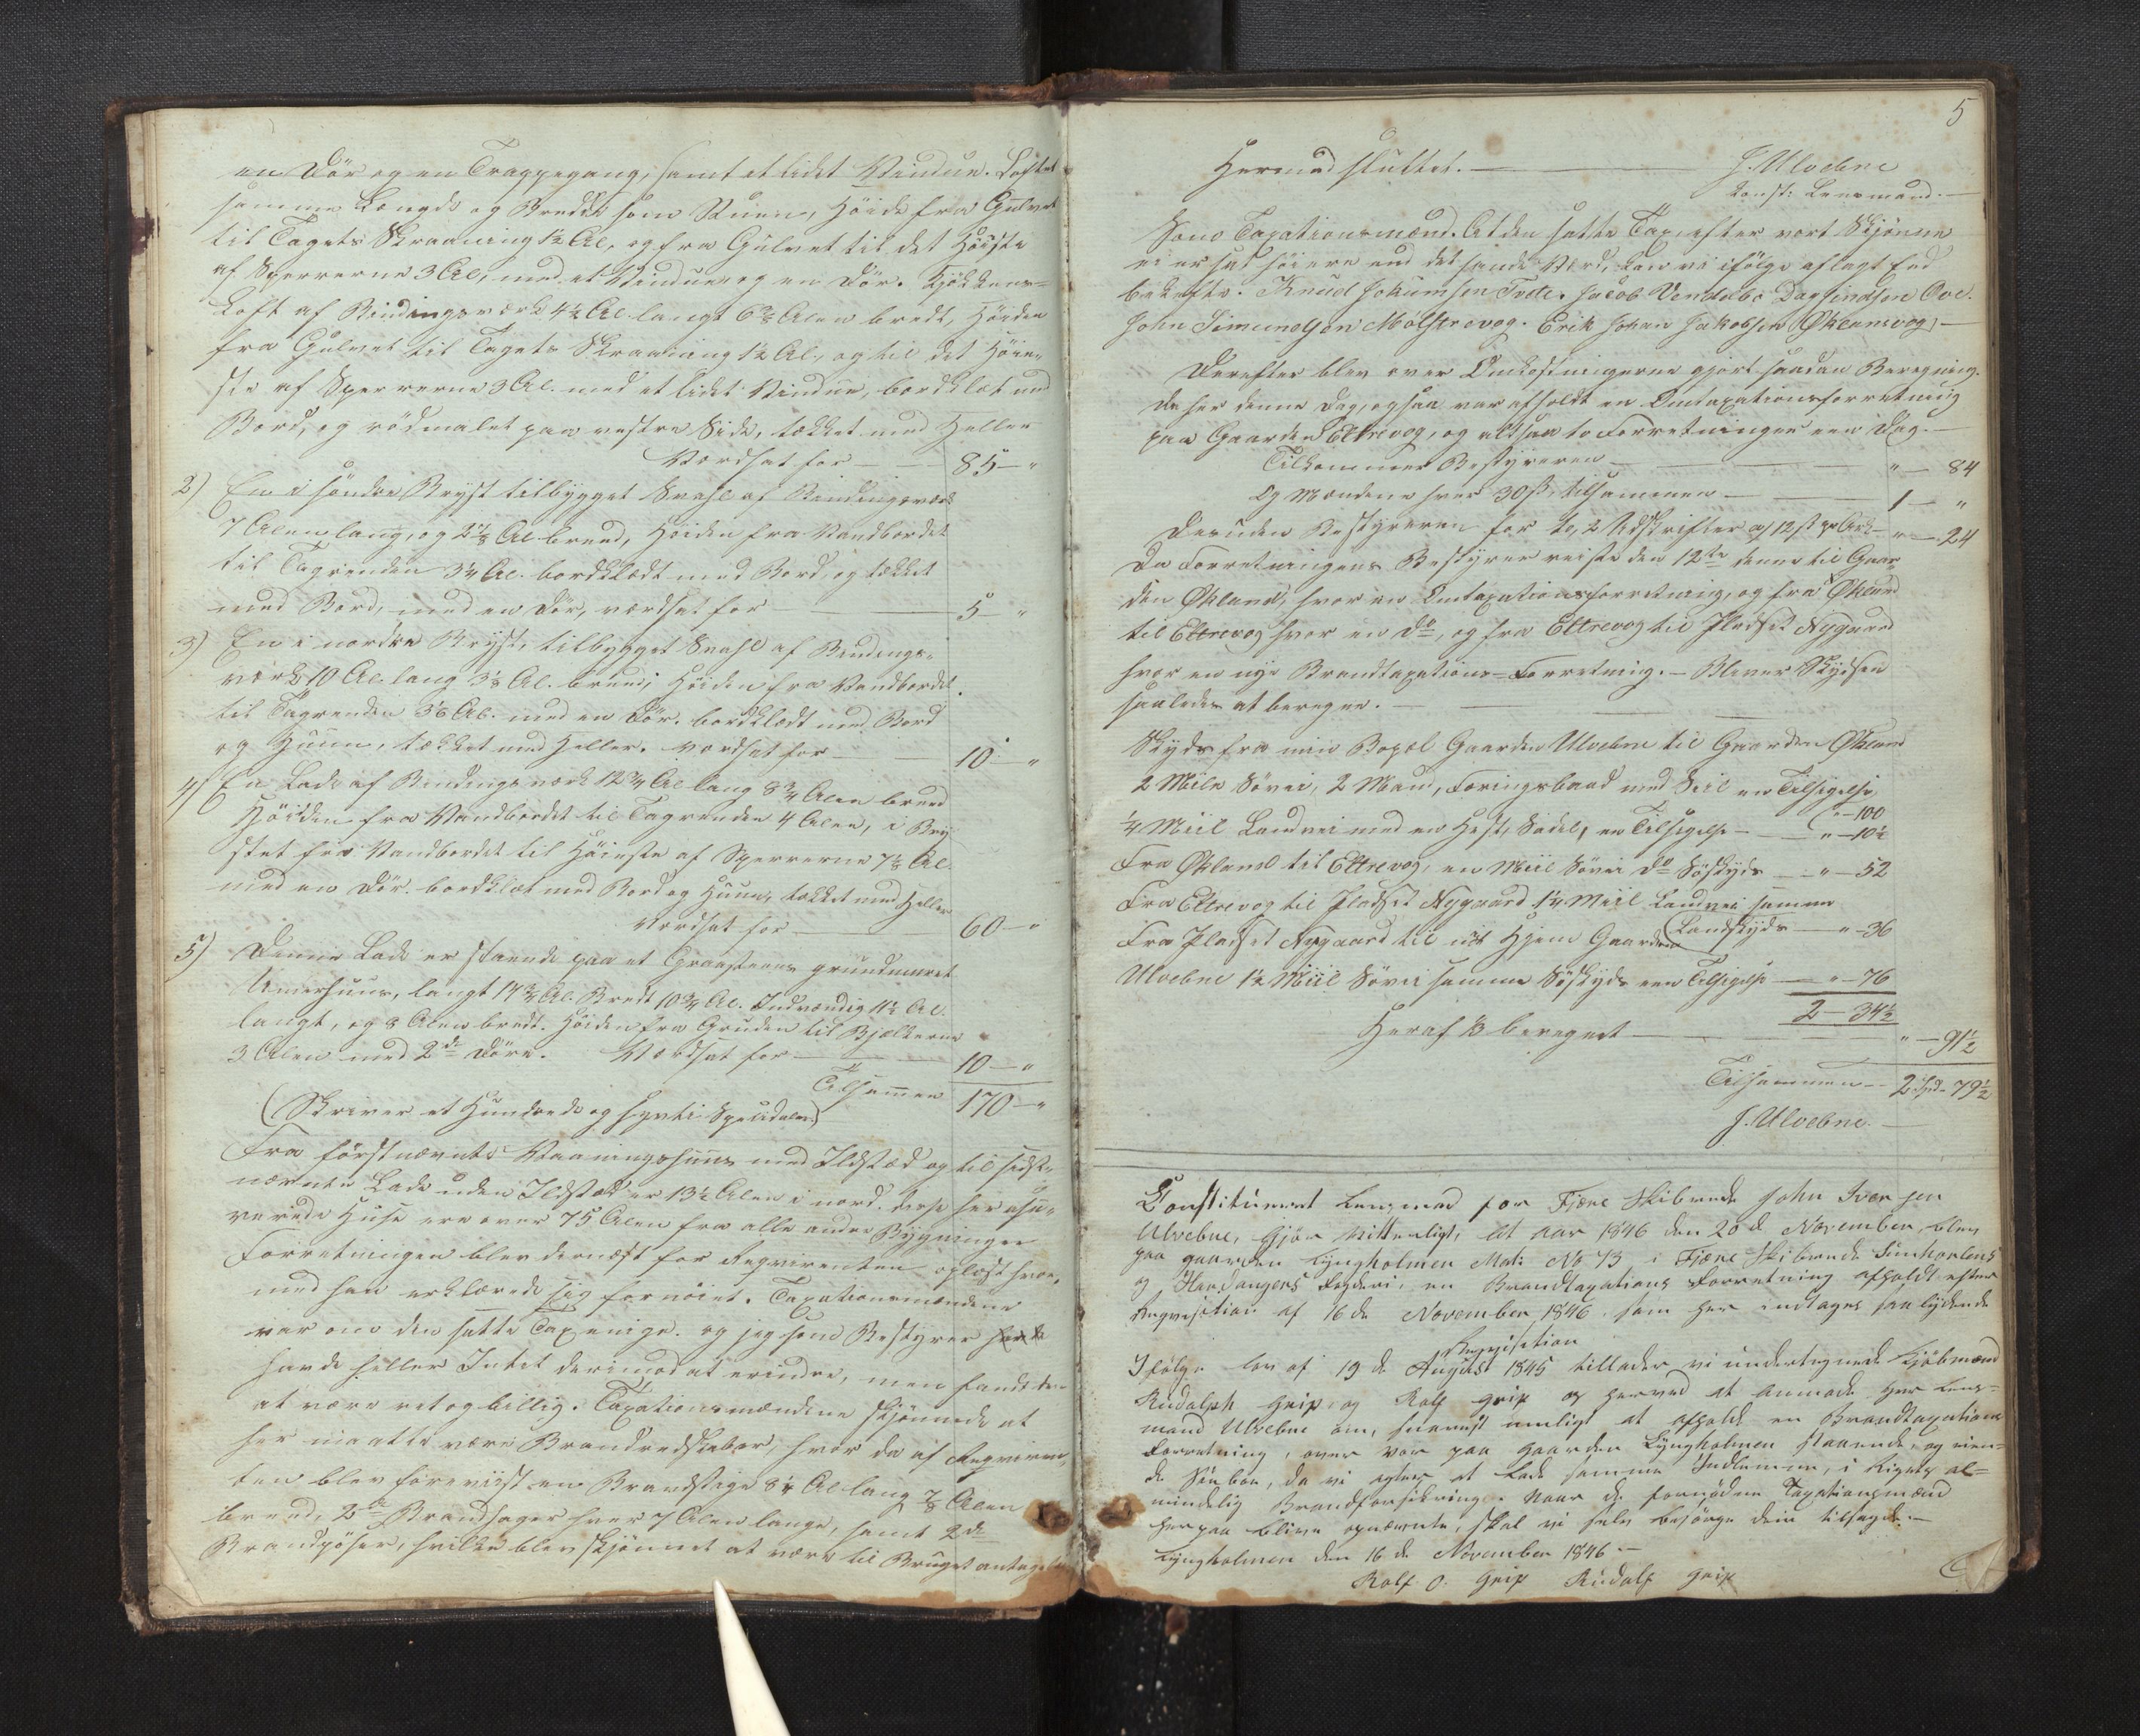 en Dör og en Trappegang, samt et lidet Vindue. Loftet
samme Længde og Bredde som Stuen, Höide fra Gulvet
til Tagets Skraaning 1½ Al, og fra Gulvet til det Höieste
af Sperrerne 3 Al, med et Vindue og en Dör. Kjökkens-
Loft af Bindingsværk 4½ Al. langt 6⅜ Alen bredt, Höiden
fra Gulvet til Tagets Skraaning 1½ Al, og til det Höie-
ste af Sperrerne 3 Al. med et lidet Vindue, bordklæt med
Bord, og rödmalet paa vestre Side, tækket med Heller
Værdsat for — 85 — "
2) En i söndre Bryst tilbygget Svahl af Bindingsværk
7 Alen lang, og 2⅛ Al breed, Höiden fra Vandbordet
til Tagrenden 3¼ Al. bordklædt med Bord, og tækket
med Bord, med en Dör, værdsat for — 5 — "
3) En i nordre Bryst, tilbygget Svahl af Bindings-
værk 10 Al. lang 3⅛ Al. breed; Höiden fra Vandbordet
til Tagrenden 3⅛ Al. med en Dör. bordklædt med Bord
og Huun, tækket med Heller. værdsat for — 10 — "
4) En Lade af Bindingsværk 12¾ Al lang 8¾ Alen breed
Höiden fra Vandbordet til Tagrenden 4 Alen, i Bry-
stet fra Vandbordet til Höieste af Sperrerne 7½ Al.
med en Dör. bordklæt med Bord og Huun, tækket med Heller
Værdsat for — 60 — "
5) Denne Lade er staaende paa et Graasteens grundmuret
langt 14¾ Al. Bredt 10¾ Al. Indvendig 11½ Al.
langt, og 8 Alen bredt. Höiden fra Gruden til Bjelkerne
3 Alen med 2de Döre. Værdsat for — 10 — "
Tilsamen 170 — "
(Skriver et Hundrede og Sÿvti Speciedaler)
Fra förstnævnte Vaaningshuus med Ildsted og til sidst-
nævnte Lade uden Ildsted er 13½ Alen i nord. disse her
Huse ere over 75 Alen fra alle andre Bygninger
Forretningen blev dernæst for Reqvirenten oplæst hvor-
med han erklærede sig fornöiet. Taxationsmændene
var om den satte Tax enige. og jeg som Bestyrer
havde heller Intet derimod at erindre, men fandt den
at være ret og billig. Taxationsmændene skjönnede at
her maatte være Brandredskaber, hvor da af Reqviren-
ten blev foreviist en Brandstige 8¼ Al lang ⅞ Alen
breed, 2de Brandhager hver 7 Alen lange, samt 2de
Brandpöser, hvilke blev skjönnet at være til Bruget antagelig
5
Hermed sluttet. — J. Ulvebne
Const: Lensmand. —
Som Taxationsmænd. At den satte Tax efter vort Skjönne
ei er sat höiere end det sande Værd, kan vi ifölge aflagt Eed
bekræfte. Knud Johumsen Tvete. Jacob Vendelbo Dagfindsen Ove.
John Simundsen Mölstrevog. Erik Johan Jakobsen Öklandsvog —
Derefter blev over Omkostningerne gjort saadan Beregning.
Da her denne Dag, ogsaa var afholdt en Omtaxationsforretning
paa Gaarden Eltrevog, og altsaa to Forretninger een Dag. —
Tilkommer Bestyreren — " — 84
Og Mændene hver 30 ß, tilsammen — 1 — "
Desuden Bestyreren for to, 2 Udskrifter a 12 ß pr Ark — " — 24
Da Forretningens Bestyrer reiste den 12te denne til Gaar-
den Økland, hvor en Omtaxationsforretning, og fra Økland
til Eltrevog hvor en do, og fra Eltrevog til Pladset Nygaard
hvor en nye Brandtaxations-Forretning. — Bliver Skydsen
saaledes at beregne. —
Skyds fra min Bopæl Gaarden Ulvebne til Gaarden Økland
2 Mile Söevei, 2 Mand, Færingsbaad med Seil en Tilsigelse
" — 100
¼ Miil Landvei med en Hest, Sadel, en Tilsigelse — " — 10½
Fra Økland til Eltrevog, en Miil Söevei do Söskyds — " — 52
Fra Eltrevog til Pladset Nygaard 1¼ Miil Landvei samme
Landskyds — " — 36
Fra Pladset Nygaard til mit Hjem Gaarden
Ulvebne 1½ Miil Söevei samme Söskyds een Tilsigelse — " — 76
2 — 34½
Heraf ⅓ beregnet — " — 91½
Tilsammen — 2 Spd. 79½
J. Ulvebne. —
Constitueret Lensmand for Fjære Skibrede John Iversen
Ulvebne, Gjör vitterligt, At aar 1846 den 20de November, blev
paa gaarden Lyngholmen Mat: No 73 i Fjære Skibrede Sunhorlens
og Hardangers Fogderi, en Brandtaxations Forretning afholdt efter
Reqvisition af 16de November 1846. som her indtages saalydende
Reqvisition
Ifölge lov af 19de August 1845 tillader vi undertegnede Kjöbmænd
Rudolph Grip og Rolf Grip os herved at anmode Hr Lens-
mand Ulvebne om, snarest muligt at afholde en Brandtaxations
Forretning, over vor paa Gaarden Lyngholmen staaende, og eien-
de Söeboe, da vi agter at lade samme Indlemme, i Rigets al-
mindelig Brandforsikring. Naar de fornödne Taxationsmænd
herpaa blive opnævnte, skal vi selv besörge dem tilsagde. —
Lyngholmen den 16de November 1846 —
Rolf O. Grip Rudolf Grip